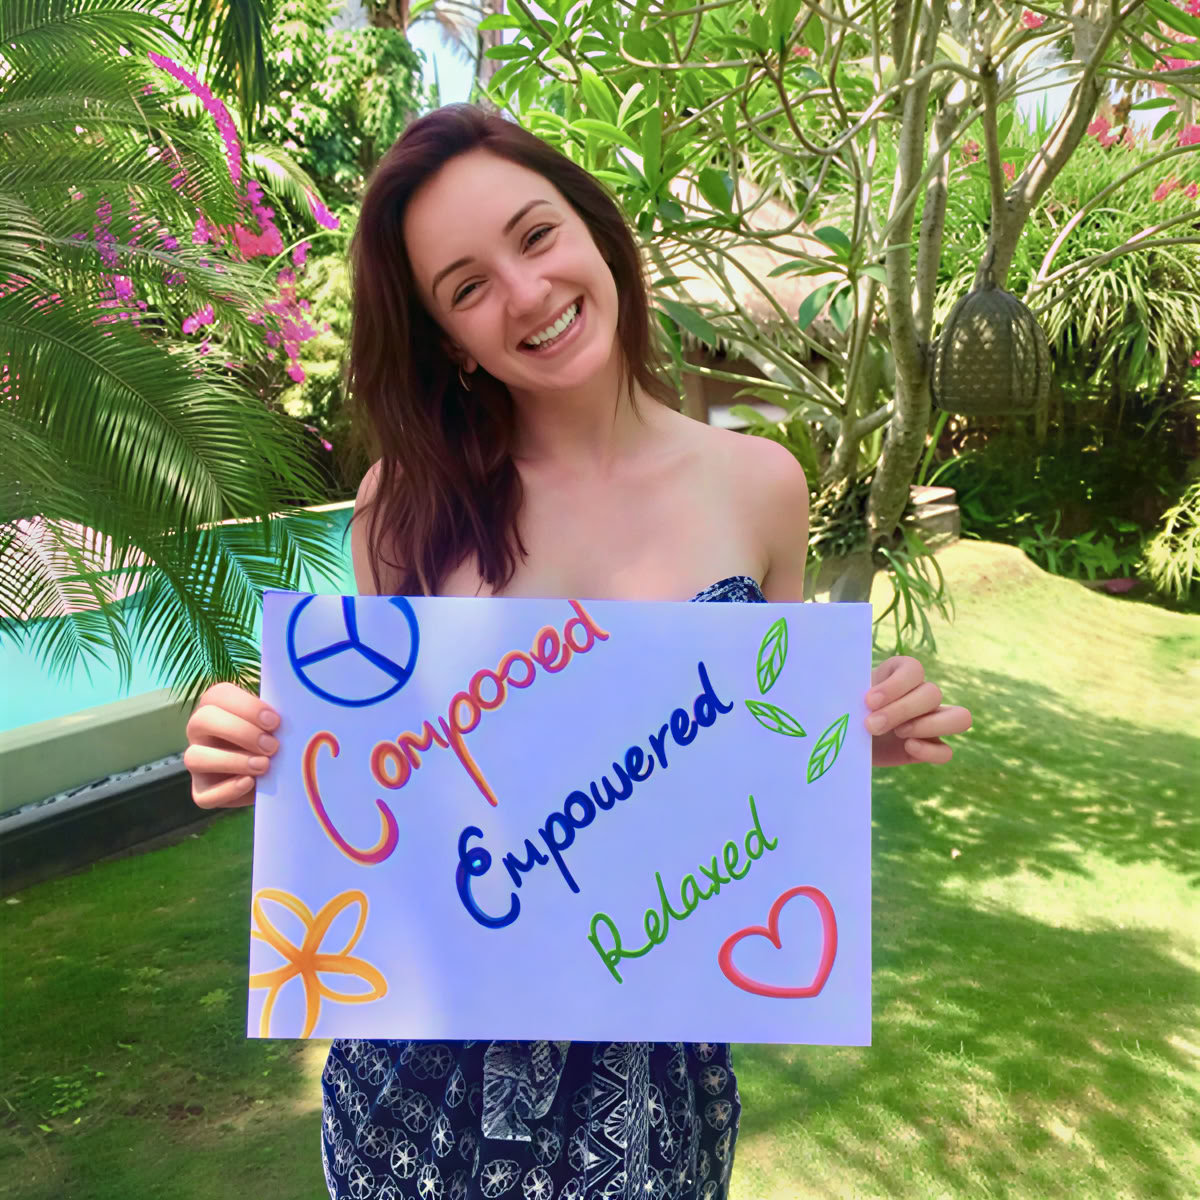 Composed
Empowered
Relaxed